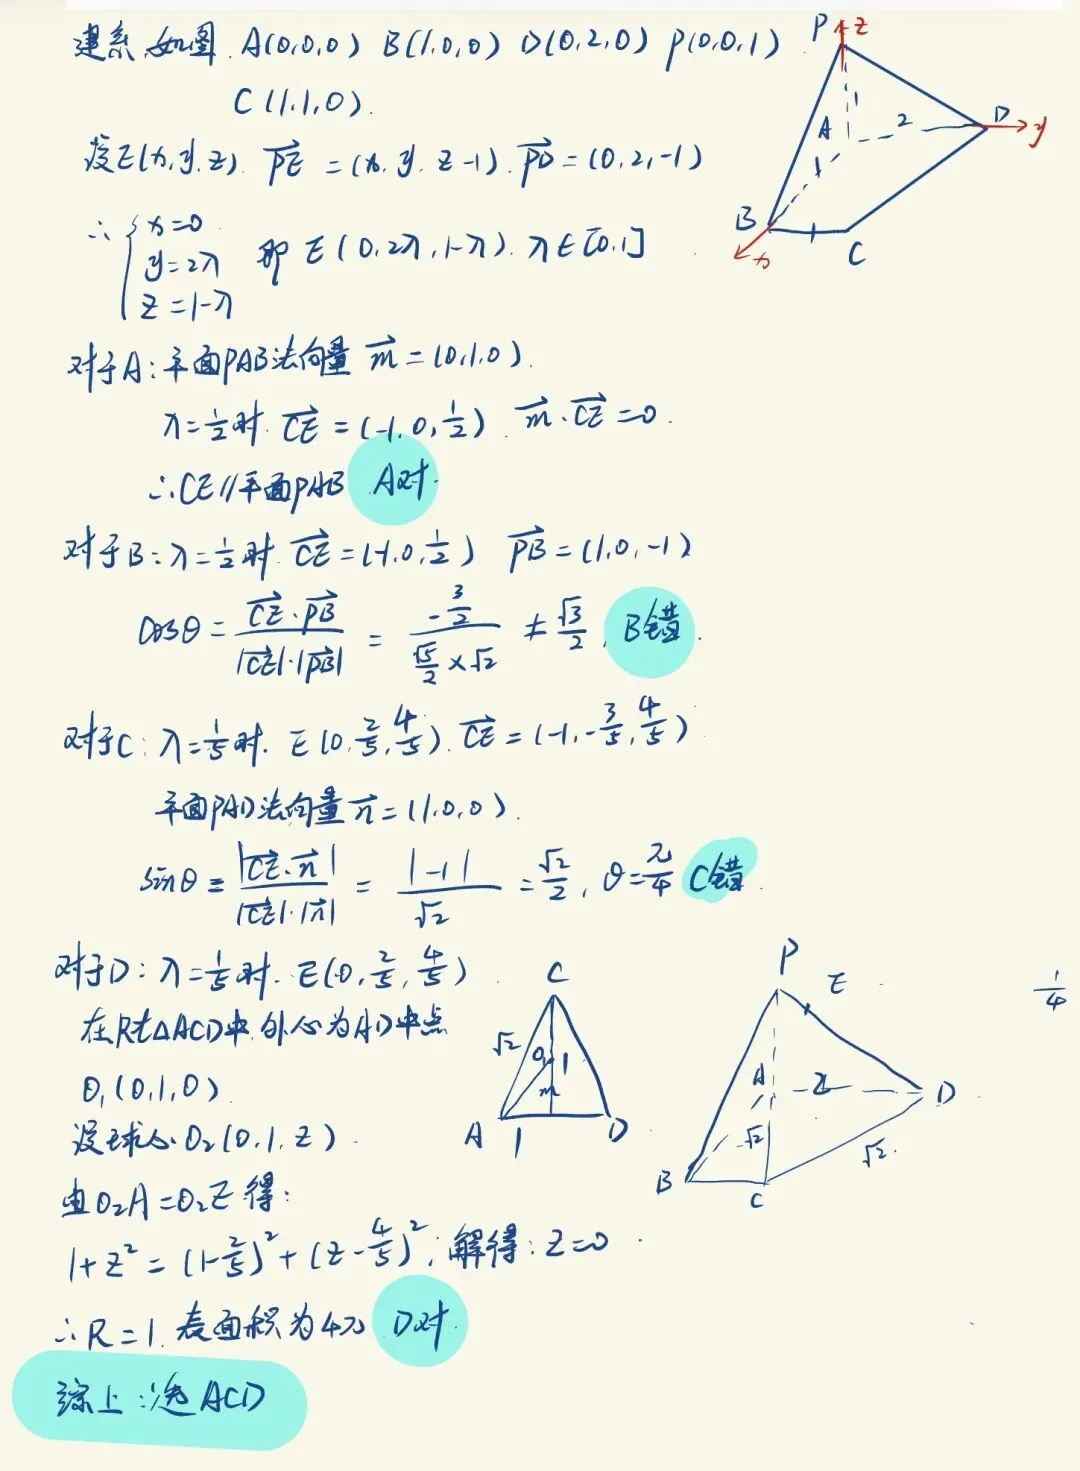 建系如图 A(0,0,0) B(1,0,0) D(0,2,0) P(0,0,1)
C(1,1,0).
设E(x,y,z). PE→ = (x,y,z-1). PD→ = (0,2,-1)
∴ { x=0
y=2λ
z=1-λ
即 E(0,2λ,1-λ). λ∈[0,1]
P z
1
A 2 D y
1
B
x C
对于A:平面PAB法向量 m→ = (0,1,0).
λ=1/2时. CE→ = (-1,0,1/2). m→·CE→ = 0.
∴CE∥平面PAB A对.
对于B:λ=1/2时. CE→ = (-1,0,1/2) PB→ = (1,0,-1)
cosθ = CE→·PB→ / |CE→|·|PB→| = -3/2 / (√5/2 × √2) ≠ √3/2. B错.
对于C:λ=1/5时. E(0,2/5,4/5). CE→ = (-1,-3/5,4/5)
平面PAD法向量 n→ = (1,0,0).
sinθ = |CE→·n→| / |CE→|·|n→| = |-1| / √2 = √2/2, θ=π/4 C错.
对于D:λ=1/5时. E(0,2/5,4/5)
在Rt△ACD中.外心为AD中点
O₁(0,1,0)
设球心O₂(0,1,z).
由O₂A=O₂E得:
1+z² = (1-2/5)² + (z-4/5)², 解得:z=0.
∴R=1. 表面积为4π D对.
综上:选ACD
C
√2 O 1
m
A 1 D
P
E
A 2 D
√2
√2.
B
C
1/4